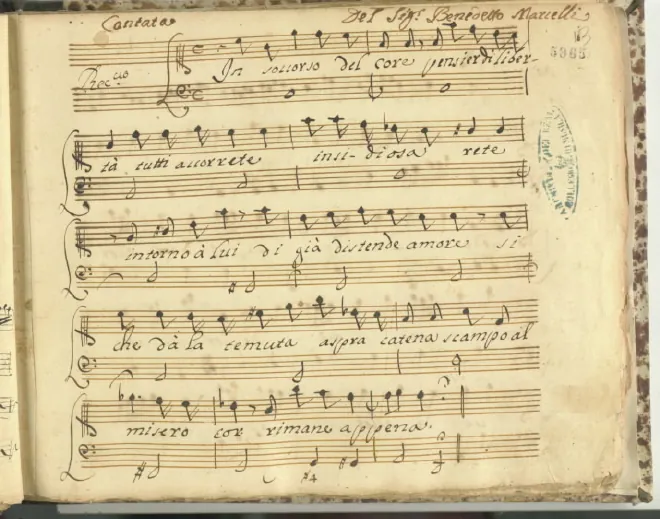 Cantata Del Sig.r Benedetto Marcelli
B
5365
Rec.uo
In soccorso del core pensier di liber-
tà tutti accorrete insi-diosa rete
intorno à lui di già distende amore si
che dà la temuta aspra catena scampo al
misero cor rimane appena.
#4